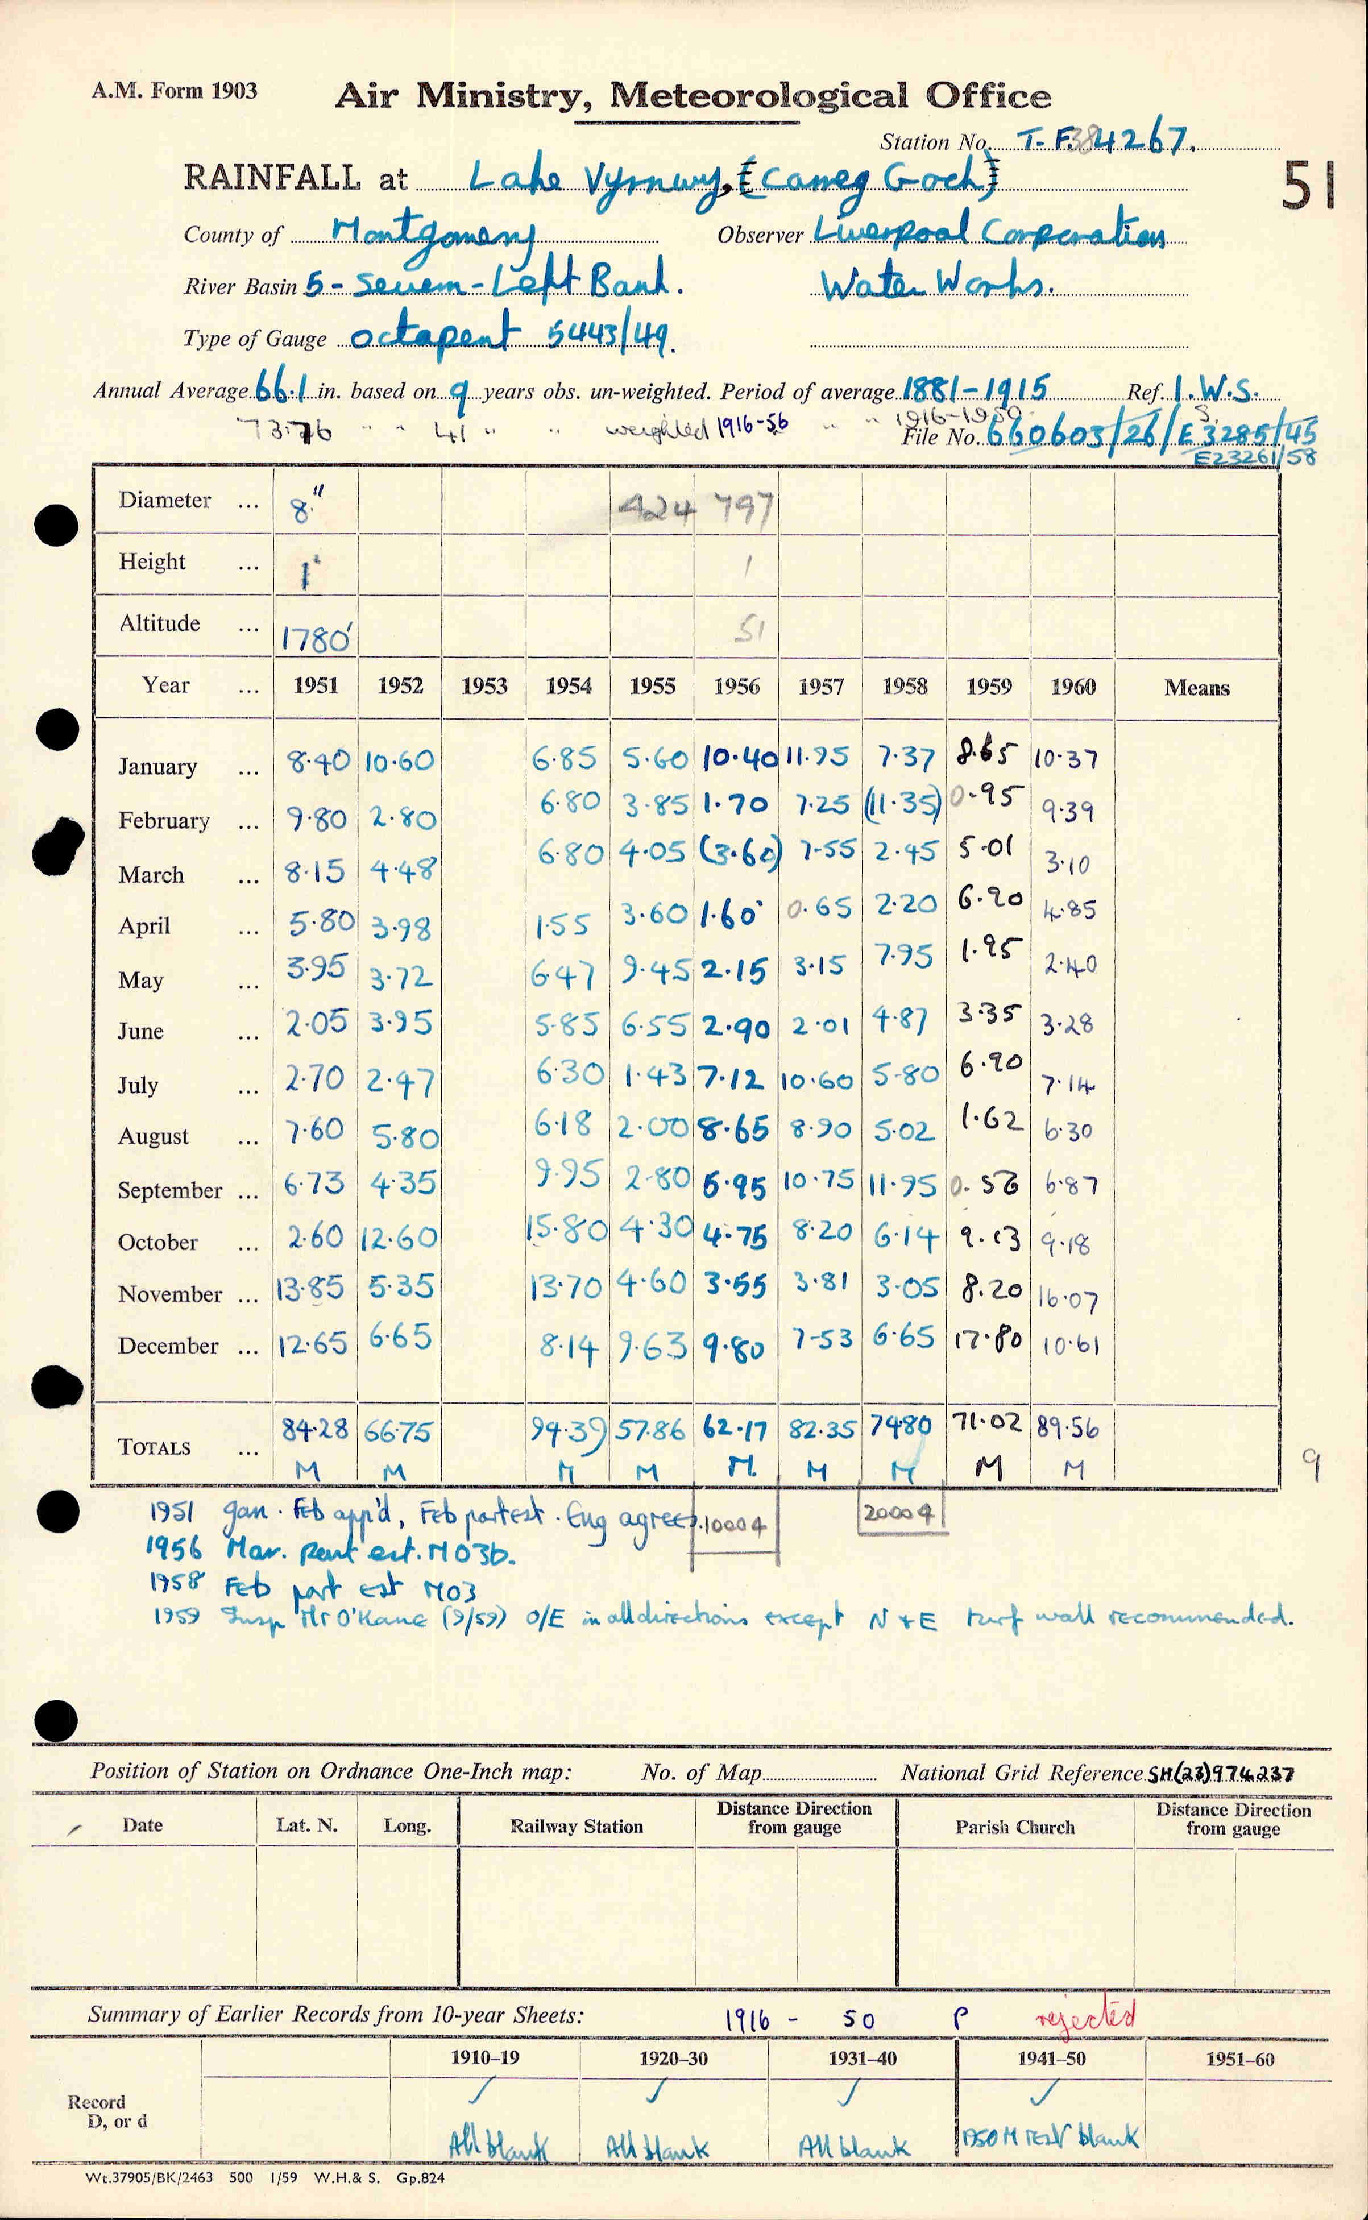 A.M. Form 1903 Air Ministry, Meteorological Office
Station No. T.F. 384267.
RAINFALL at Lake Vyrnwy, (Carreg Goch) 51
County of Montgomery Observer Liverpool Corporation
River Basin 5 - Severn - Left Bank. Water Works.
Type of Gauge octapent 5443/49.
Annual Average 66.1 in. based on 9 years obs. un-weighted. Period of average 1881-1915 Ref. I.W.S.
73.76 " " 41 " " weighted 1916-56 " " 1916-1950
File No. 660603/26/E 3285/45
E23261/58
Diameter ... 8" 424 797
Height ... 1' 1
Altitude ... 1780' 51
Year ... 1951 1952 1953 1954 1955 1956 1957 1958 1959 1960 Means
January ... 8.40 10.60 6.85 5.60 10.40 11.95 7.37 8.65 10.37
February ... 9.80 2.80 6.80 3.85 1.70 7.25 (11.35) 0.95 9.39
March ... 8.15 4.48 6.80 4.05 (3.60) 7.55 2.45 5.01 3.10
April ... 5.80 3.98 1.55 3.60 1.60 0.65 2.20 6.90 4.85
May ... 3.95 3.72 6.47 9.45 2.15 3.15 7.95 1.95 2.40
June ... 2.05 3.95 5.85 6.55 2.90 2.01 4.87 3.35 3.28
July ... 2.70 2.47 6.30 1.43 7.12 10.60 5.80 6.90 7.14
August ... 7.60 5.80 6.18 2.00 8.65 8.90 5.02 1.62 6.30
September ... 6.73 4.35 9.95 2.80 5.95 10.75 11.95 0.56 6.87
October ... 2.60 12.60 15.80 4.30 4.75 8.20 6.14 9.13 9.18
November ... 13.85 5.35 13.70 4.60 3.55 3.81 3.05 8.20 16.07
December ... 12.65 6.65 8.14 9.63 9.80 7.53 6.65 17.80 10.61
TOTALS ... 84.28 66.75 94.39 57.86 62.17 82.35 74.80 71.02 89.56
M M M M M. M M M M 9
1951 Jan. Feb app'd, Feb part est. Eng agrees. 10004 20004
1956 Mar. part est. MO3b.
1958 Feb part est MO3
1959 Insp Mr O'Kane (9/59) O/E in all directions except N + E turf wall recommended.
Position of Station on Ordnance One-Inch map: No. of Map National Grid Reference SH(23)974237
Date Lat. N. Long. Railway Station Distance Direction from gauge Parish Church Distance Direction from gauge
Summary of Earlier Records from 10-year Sheets: 1916 - 50 P rejected
1910–19 1920–30 1931–40 1941–50 1951–60
Record ✓ ✓ ✓ ✓
D, or d All blank All blank All blank 1950 M rest blank
Wt.37905/BK/2463 500 1/59 W.H.& S. Gp.824